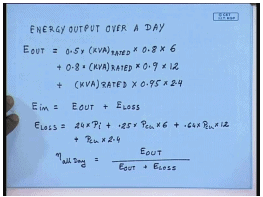 © CET
I.I.T. KGP
ENERGY OUTPUT OVER A DAY
EOUT = 0.5 × (KVA)RATED × 0.8 × 6
+ 0.8 × (KVA)RATED × 0.9 × 12
+ (KVA)RATED × 0.95 × 2.4
Ein = EOUT + ELOSS
ELOSS = 24 × Pi + .25 × Pcu × 6 + .64 × Pcu × 12
+ Pcu × 2.4
ηall Day = EOUT
EOUT + ELOSS